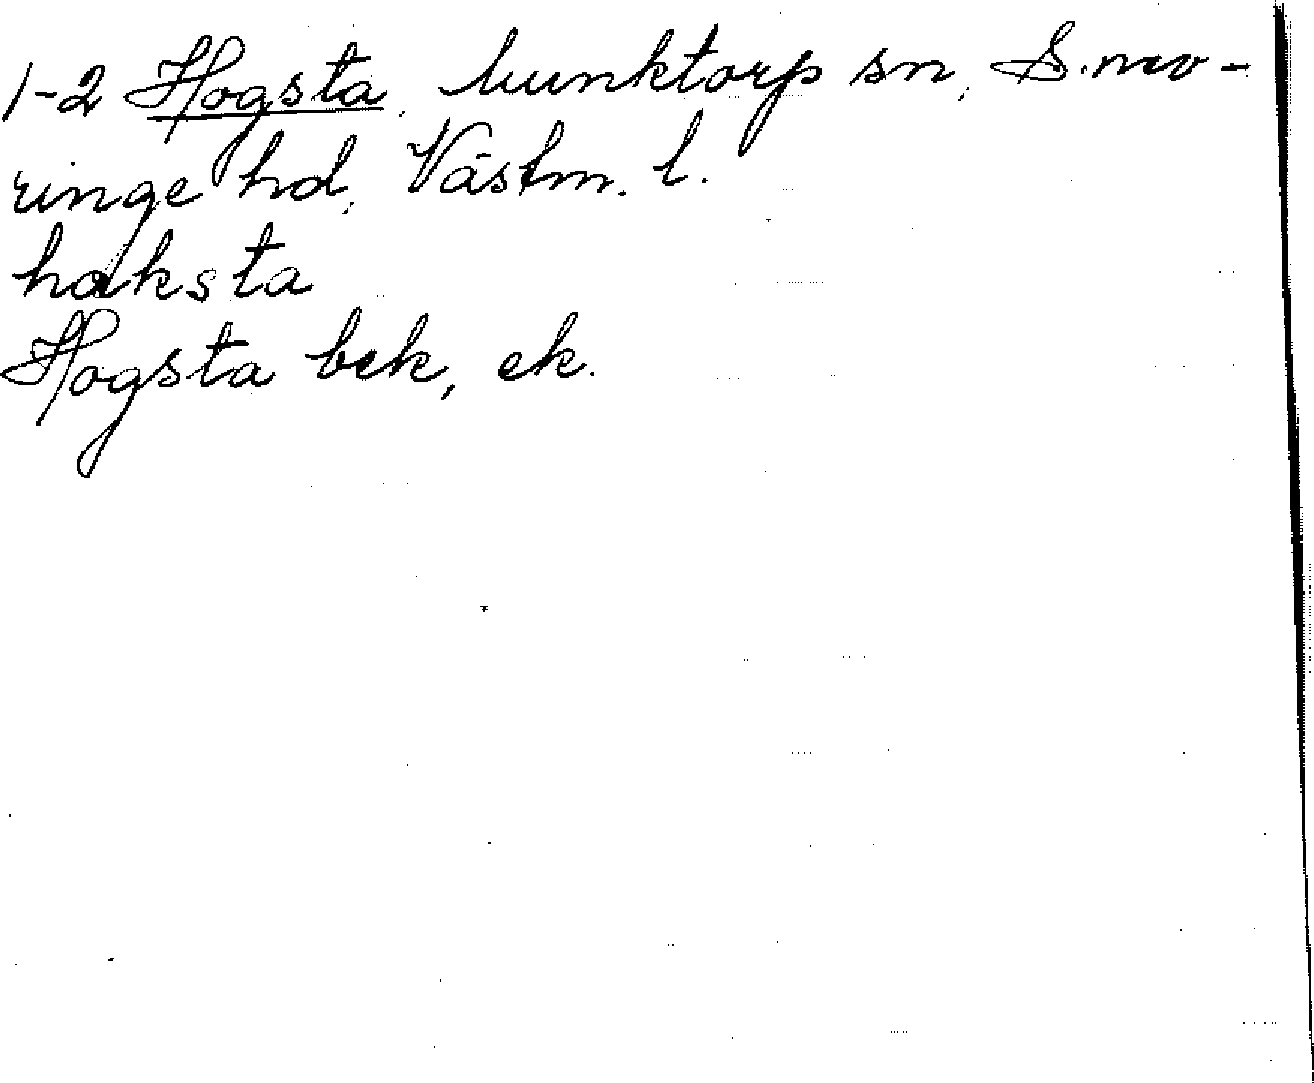 1-2 Hogsta, Munktorp sn, Snev-
ringe hd, Västm. l.
haksta
Hogsta bek, ek.